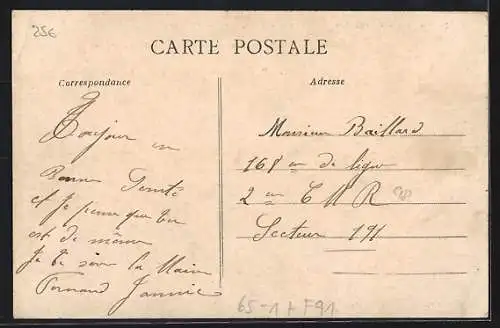 25€
CARTE POSTALE
Correspondance
Adresse
Toujour en
Bonne Sentée
et je pense que toi
est de même
Je te sère la Main
Fernand Jannie
Monsieur Baillard
168 em de ligne
2 em C H R
Secteur 191
65-1 + F91